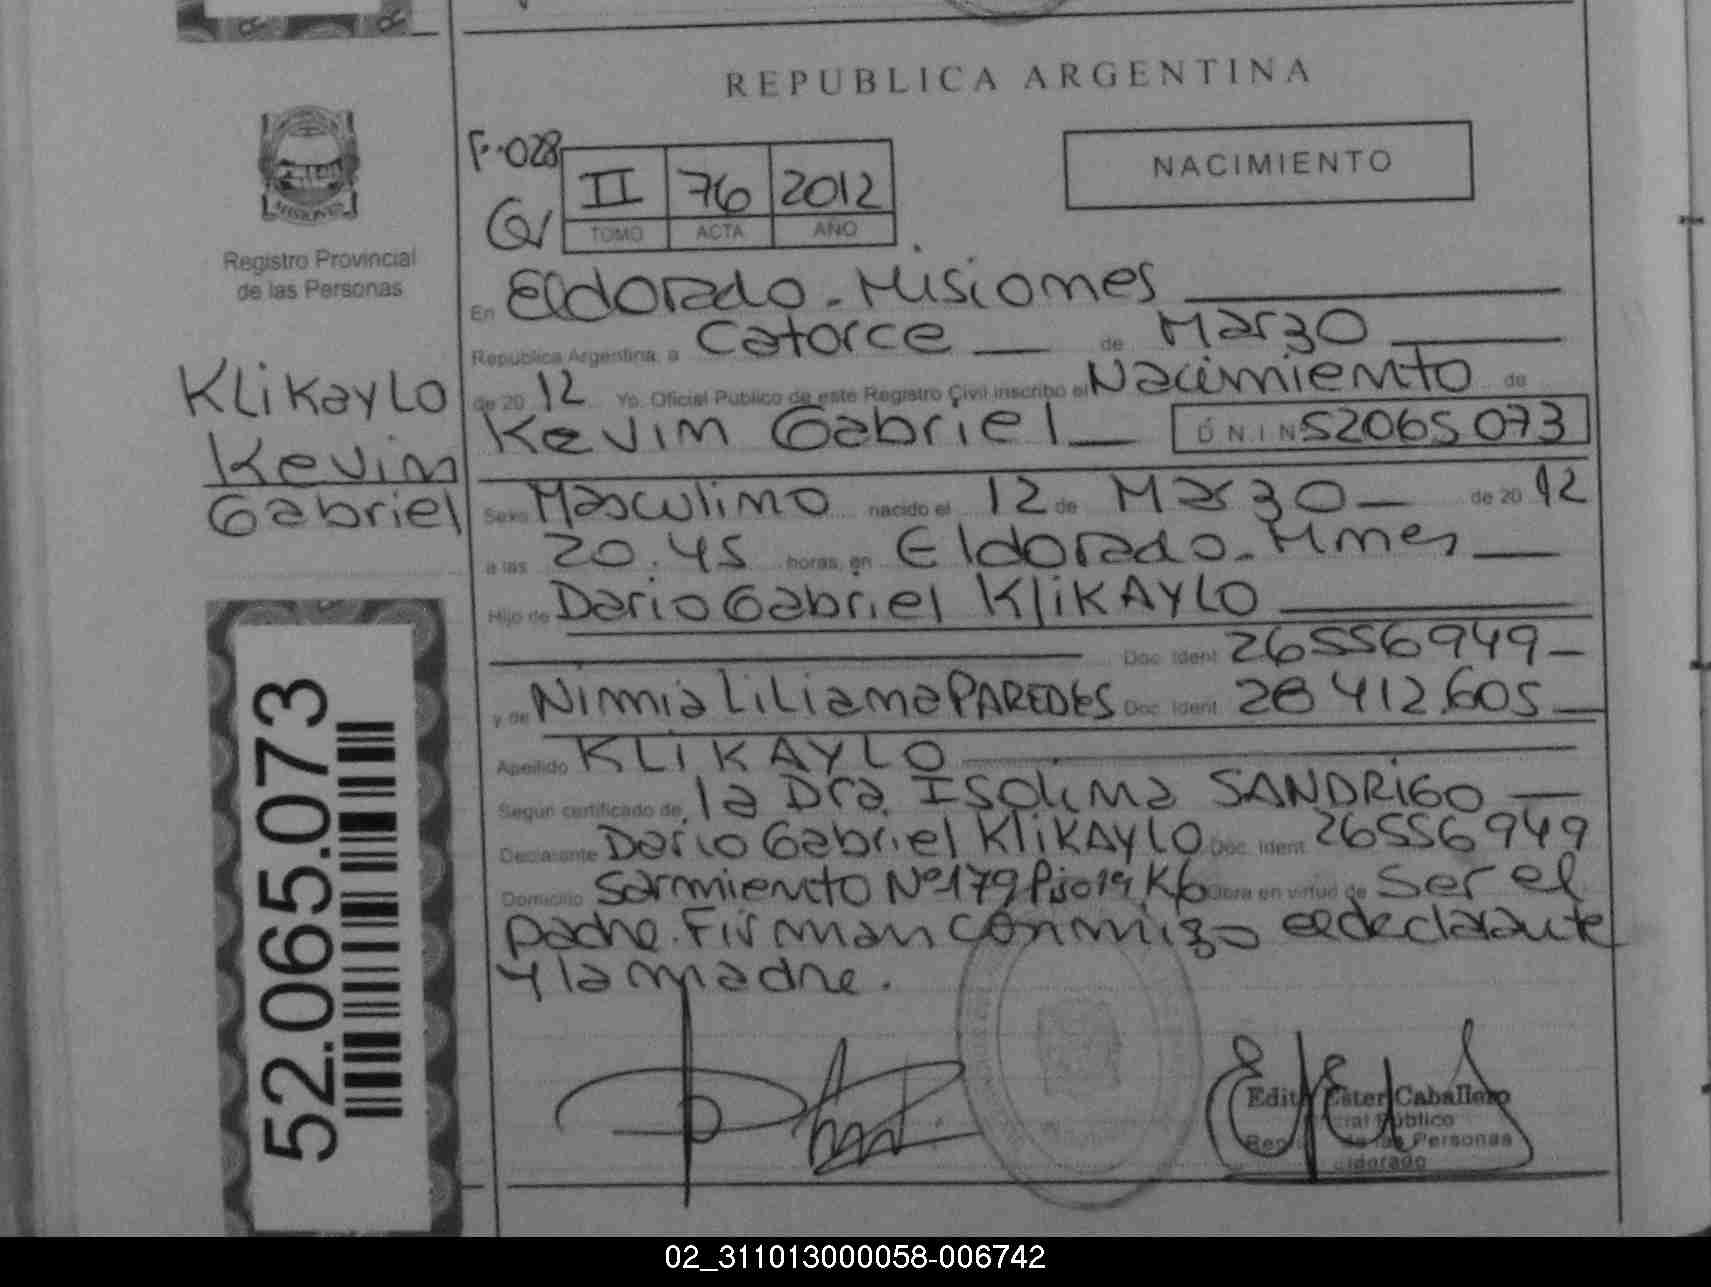 REPUBLICA ARGENTINA
F.028
II 76 2012
TOMO ACTA AÑO
NACIMIENTO
MISIONES
Registro Provincial
de las Personas
Klikaylo
Kevin
Gabriel
52.065.073
En Eldorado - Misiones
Republica Argentina, a Catorce de Marzo
de 2012 Yo, Oficial Público de este Registro Civil inscribo el Nacimiento de
Kevin Gabriel D.N.I.N 52065073
Sexo Masculino nacido el 12 de Marzo de 2012
a las 20.45 horas, en Eldorado - Mnes
Hijo de Dario Gabriel KliKAYLO
Doc. Ident. 26556949
y de Ninnia Liliana PAREDES Doc. Ident. 28412.605
Apellido KLiKAYLO
Según certificado de la Dra. Isolina SANDRIGO
Declarante Dario Gabriel KliKAYLO Doc. Ident. 26556949
Domicilio Sarmiento Nº 179 Piso 19, K/6 Obra en virtud de Ser el
padre. Firman conmigo el declarante
y la madre.
Edith Ester Caballero
Oficial Público
de las Personas
Eldorado
02_311013000058-006742